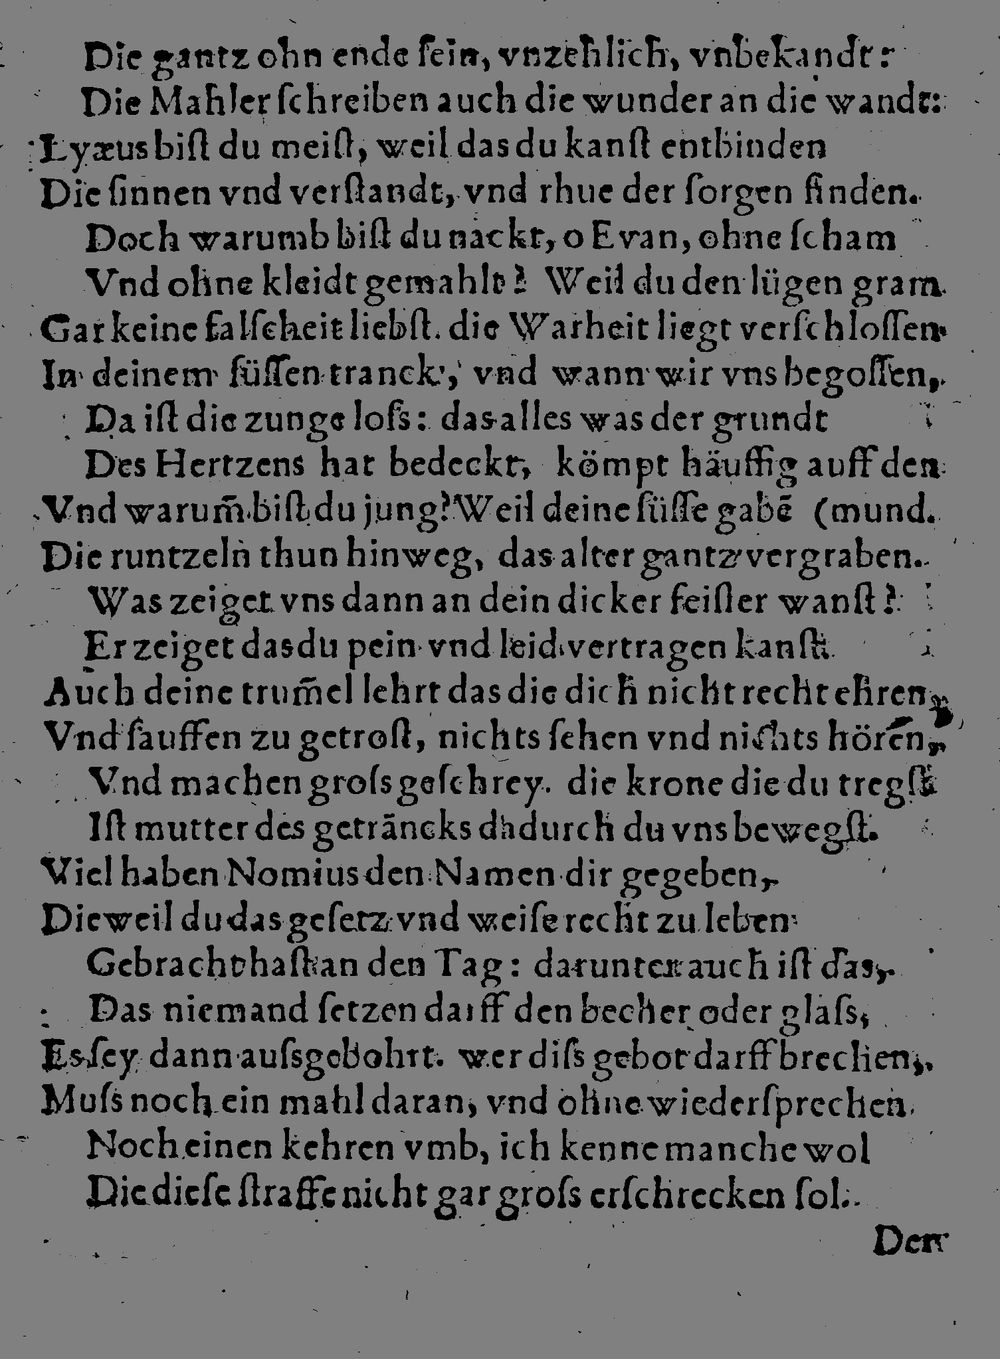 Die gantz ohn ende ſein, vnzehlich, vnbekandt:
Die Mahler ſchreiben auch die wunder an die wandt:
Lyæus biſt du meiſt, weil das du kanſt entbinden
Die ſinnen vnd verſtandt, vnd rhue der ſorgen finden.
Doch warumb biſt du nackt, o Evan, ohne ſcham
Vnd ohne kleidt gemahlt? Weil du den lügen gram
Gar keine falſcheit liebſt. die Warheit liegt verſchloſſen
In deinem ſüſſen tranck, vnd wann wir vns begoſſen,
Da iſt die zunge loſs: das alles was der grundt
Des Hertzens hat bedeckt, kömpt häuffig auff den
Vnd warum̃ biſt du jung? Weil deine ſüſſe gabẽ (mund.
Die runtzeln thun hinweg, das alter gantz vergraben.
Was zeiget vns dann an dein dicker feiſter wanſt?
Er zeiget das du pein vnd leid vertragen kanſt.
Auch deine trum̃el lehrt das die dich nicht recht ehren,
Vnd ſauffen zu getroſt, nichts ſehen vnd nichts hörẽn,
Vnd machen groſs geſchrey. die krone die du tregſt
Iſt mutter des geträncks dadurch du vns bewegſt.
Viel haben Nomius den Namen dir gegeben,
Dieweil du das geſetz vnd weiſe recht zu leben
Gebracht haſt an den Tag: darunter auch iſt das,
Das niemand ſetzen darff den becher oder glaſs,
Es ſey dann auſsgebohrt. wer diſs gebot darff brechen,
Muſs noch ein mahl daran, vnd ohne wiederſprechen.
Noch einen kehren vmb, ich kenne manche wol
Die dieſe ſtraffe nicht gar groſs erſchrecken ſol.
Den